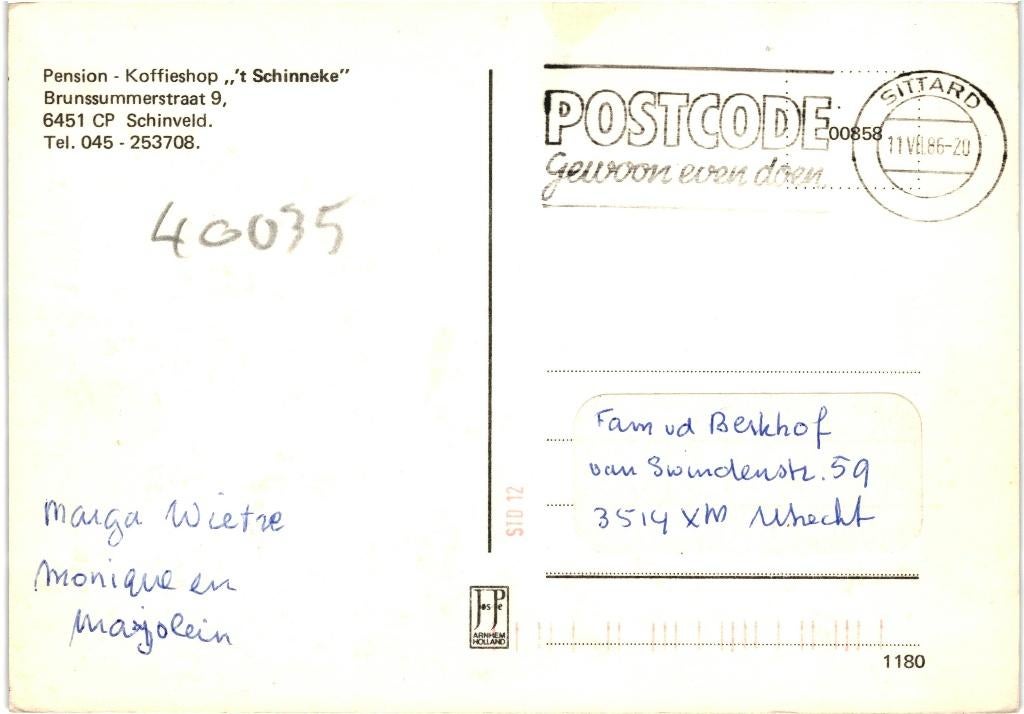 Pension - Koffieshop „'t Schinneke”
Brunssummerstraat 9,
6451 CP Schinveld.
Tel. 045 - 253708.
40035
Marga Wietze
Monique en
Marjolein
POSTCODE
gewoon even doen
00858
SITTARD
11 VII.86-20
Fam vd Berkhof
van Swindenstr. 59
3514 XM Utrecht
STD 12
JosPe
ARNHEM
HOLLAND
1180